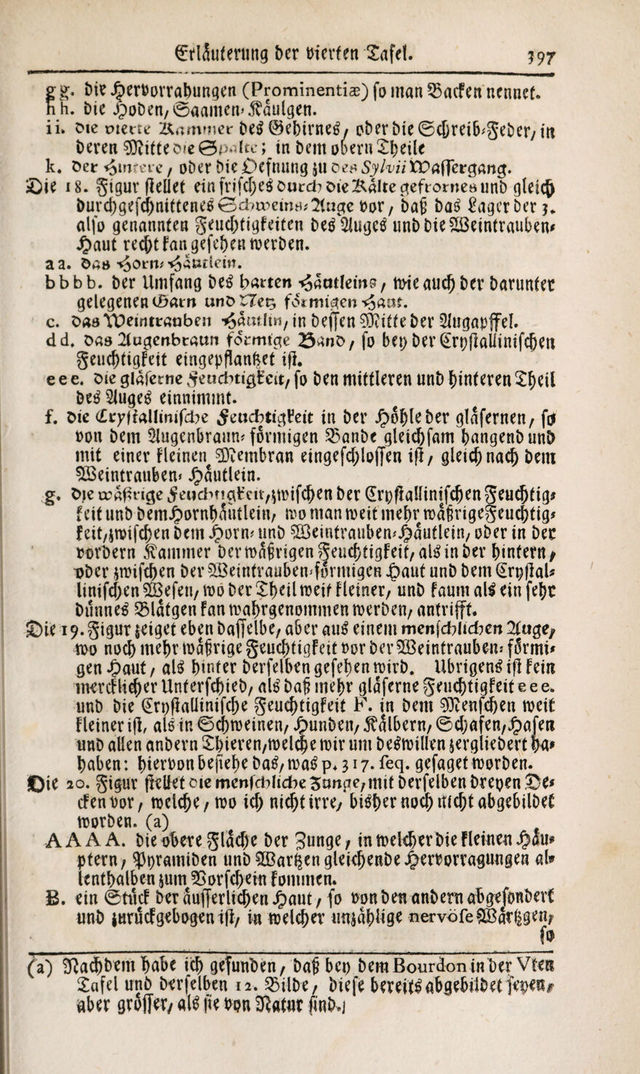 Erläuterung der vierten Tafel. 397
gg. die Hervorrahungen (Prominentiæ) so man Backen nennet.
hh. die Hoden, Saamen-Käulgen.
ii. die vierte Kammer des Gehirnes, oder die Schreib-Feder, in
deren Mitte die Spalte; in dem obern Theile
k. der Hintere, oder die Oefnung zu des Sylvii Wassergang.
Die 18. Figur stellet ein frisches durch die Kälte gefrornes und gleich
durchgeschnittenes Schweins-Auge vor, daß das Lager der 3.
also genannten Feuchtigkeiten des Auges und die Weintrauben-
Haut recht kan gesehen werden.
aa. das Horn-Häutlein.
bbbb. der Umfang des harten Häutleins, wie auch der darunter
gelegenen Garn und Netz förmigen Haut.
c. das Weintrauben Häutlin, in dessen Mitte der Augapffel.
dd. das Augenbraun förmige Band, so bey der Crystallinischen
Feuchtigkeit eingepflantzet ist.
eee. die gläserne Feuchtigkeit, so den mittleren und hinteren Theil
des Auges einnimmt.
f. die Crystallinische Feuchtigkeit in der Höhle der gläsernen, so
von dem Augenbraun-förmigen Bande gleichsam hangend und
mit einer kleinen Membran eingeschlossen ist, gleich nach dem
Weintrauben-Häutlein.
g. die wäßrige Feuchtigkeit, zwischen der Crystallinischen Feuchtig-
keit und dem Hornhäutlein, wo man weit mehr wäßrige Feuchtig-
keit, zwischen dem Horn- und Weintrauben-Häutlein, oder in der
vordern Kammer der wäßrigen Feuchtigkeit, als in der hintern,
oder zwischen der Weintrauben-förmigen Haut und dem Crystal-
linischen Wesen, wo der Theil weit kleiner, und kaum als ein sehr
dünnes Blätgen kan wahrgenommen werden, antrifft.
Die 19. Figur zeiget eben dasselbe, aber aus einem menschlichen Auge,
wo noch mehr wäßrige Feuchtigkeit vor der Weintrauben-förmi-
gen Haut, als hinter derselben gesehen wird. Ubrigens ist kein
mercklicher Unterschied, als daß mehr gläserne Feuchtigkeit eee.
und die Crystallinische Feuchtigkeit F. in dem Menschen weit
kleiner ist, als in Schweinen, Hunden, Kälbern, Schafen, Hasen
und allen andern Thieren, welche wir um deswillen zergliedert ha-
haben: hiervon besiehe das, was p. 317. seq. gesaget worden.
Die 20. Figur stellet die menschliche Zunge, mit derselben dreyen De-
cken vor, welche, wo ich nicht irre, bisher noch nicht abgebildet
worden. (a)
AAAA. die obere Fläche der Zunge, in welcher die kleinen Häu-
ptern, Pyramiden und Wartzen gleichende Hervorragungen al-
lenthalben zum Vorschein kommen.
B. ein Stück der äusserlichen Haut, so von den andern abgesondert
und zurückgebogen ist, in welcher unzählige nervöse Wärtzgen,
so
(a) Nachdem habe ich gefunden, daß bey dem Bourdon in der Vten
Tafel und derselben 12. Bilde, diese bereits abgebildet seyen,
aber grösser, als sie von Natur sind.